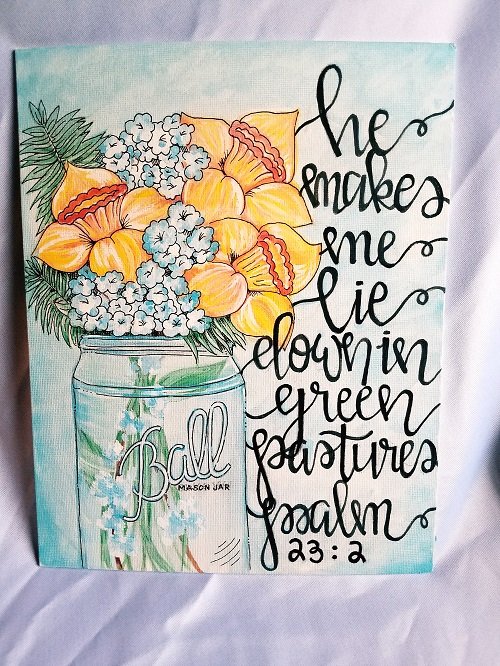 he
makes
me
lie
down in
green
pastures
psalm
23:2
Ball
MASON JAR